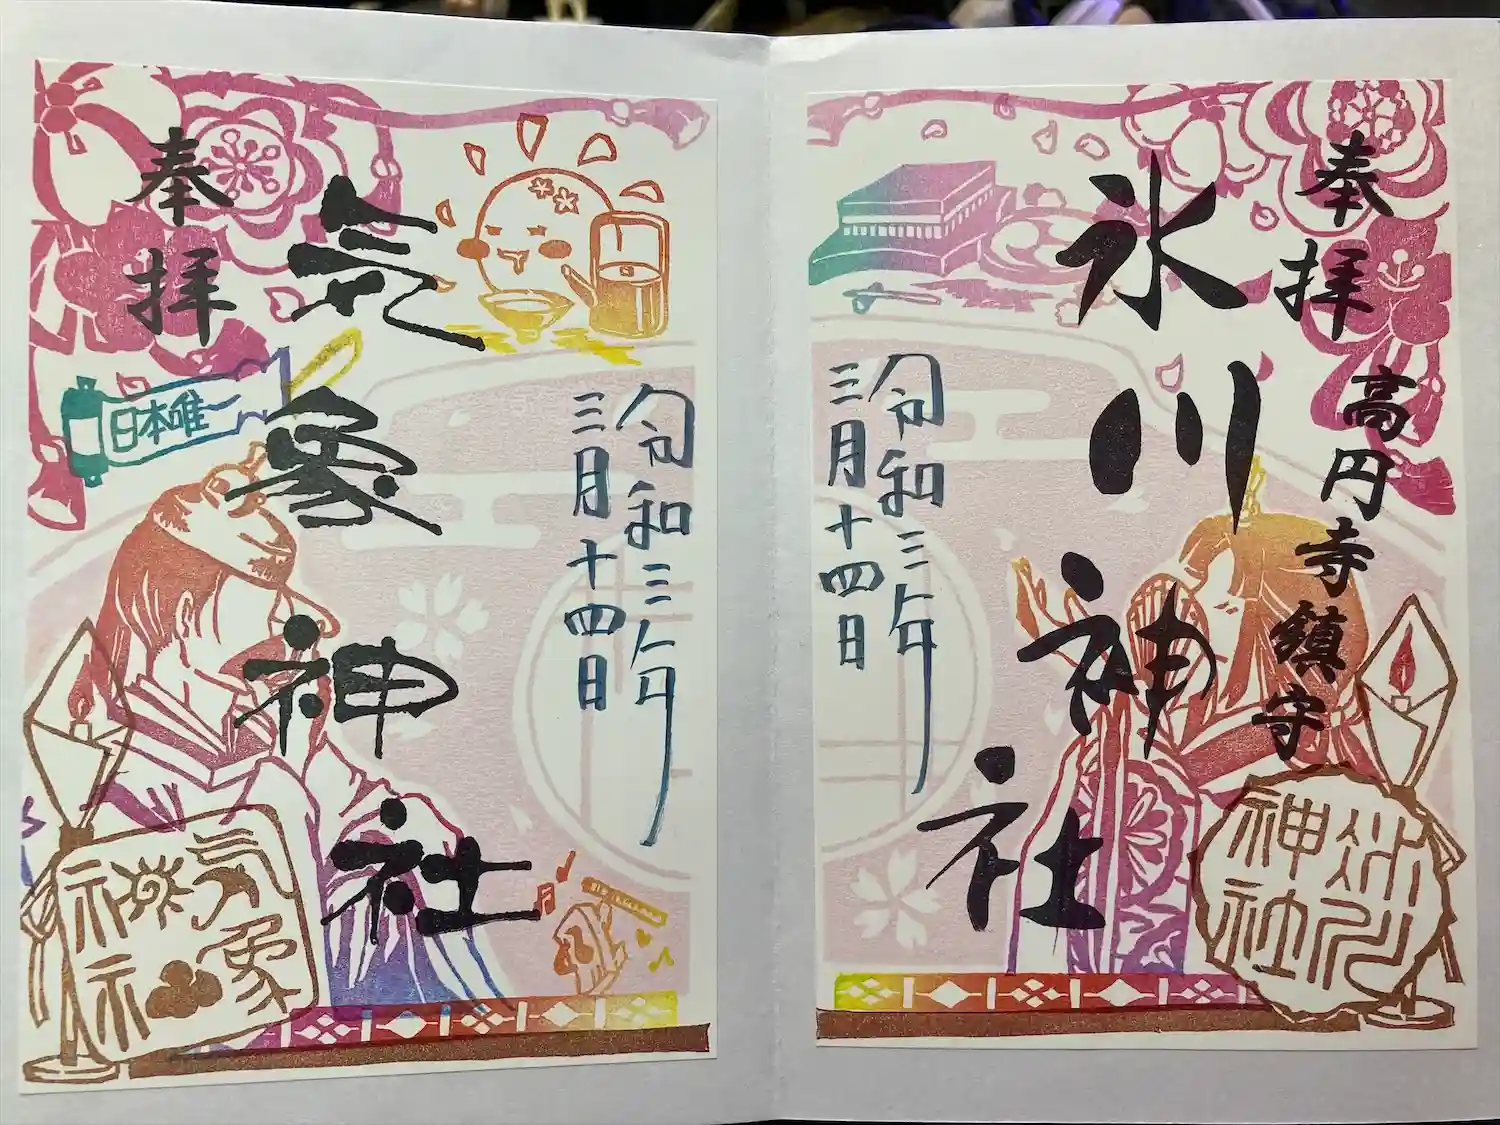 奉拝
高円寺鎮守
氷川神社
令和三年
三月十四日
氷川神社
令和三年
三月十四日
気象神社
奉拝
日本唯一
気象神社